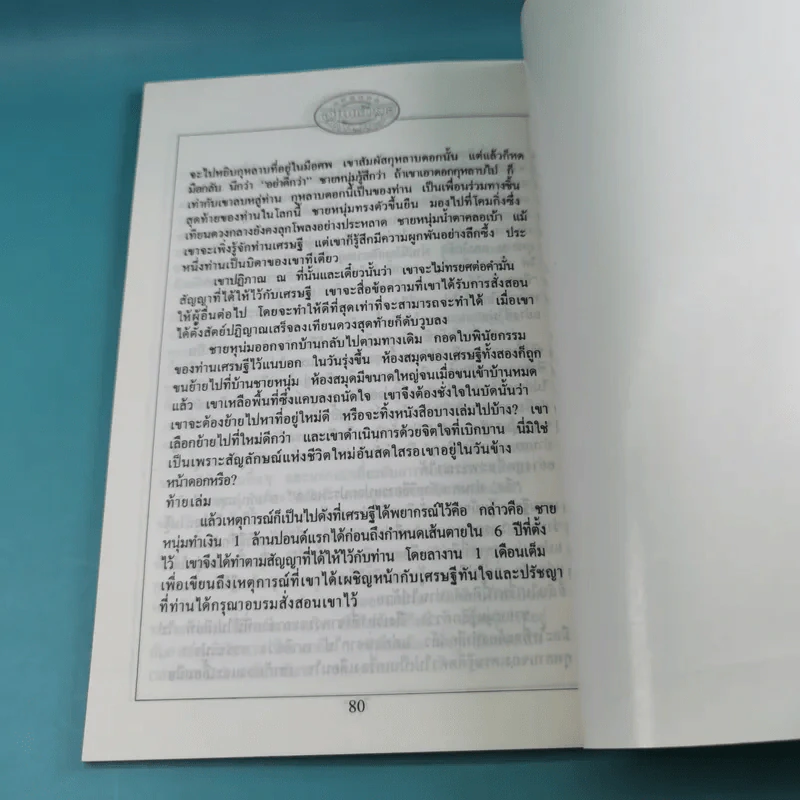 จะไปหยิบกุหลาบที่อยู่ในมือศพ เขาสัมผัสกุหลาบดอกนั้น แต่แล้วก็หด
มือกลับ นึกว่า "อย่าดีกว่า" ชายหนุ่มรู้สึกว่า ถ้าเขาเอาดอกกุหลาบไป ก็
เท่ากับเขาลบหลู่ท่าน กุหลาบดอกนี้เป็นของท่าน เป็นเพื่อนร่วมทางชิ้น
สุดท้ายของท่านในโลกนี้ ชายหนุ่มทรงตัวขึ้นยืน มองไปที่โคมกิ่งซึ่ง
เทียนดวงกลางยังคงลุกโพลงอย่างประหลาด ชายหนุ่มน้ำตาคลอเบ้า แม้
เขาจะเพิ่งรู้จักท่านเศรษฐี แต่เขาก็รู้สึกมีความผูกพันอย่างลึกซึ้ง ประ
หนึ่งท่านเป็นบิดาของเขาทีเดียว
เขาปฏิภาณ ณ ที่นั้นและเดี๋ยวนั้นว่า เขาจะไม่ทรยศต่อคำมั่น
สัญญาที่ได้ให้ไว้กับเศรษฐี เขาจะสื่อข้อความที่เขาได้รับการสั่งสอน
ให้ผู้อื่นต่อไป โดยจะทำให้ดีที่สุดเท่าที่จะสามารถจะทำได้ เมื่อเขา
ได้ตั้งสัตย์ปฏิญาณเสร็จลงเทียนดวงสุดท้ายก็ดับวูบลง
ชายหนุ่มออกจากบ้านกลับไปตามทางเดิม กอดใบพินัยกรรม
ของท่านเศรษฐีไว้แนบอก ในวันรุ่งขึ้น ห้องสมุดของเศรษฐีทั้งสองก็ถูก
ขนย้ายไปที่บ้านชายหนุ่ม ห้องสมุดมีขนาดใหญ่จนเมื่อขนเข้าบ้านหมด
แล้ว เขาเหลือพื้นที่ซึ่งแคบลงถนัดใจ เขาจึงต้องชั่งใจในบัดนั้นว่า
เขาจะต้องย้ายไปหาที่อยู่ใหม่ดี หรือจะทิ้งหนังสือบางเล่มไปบ้าง? เขา
เลือกย้ายไปที่ใหม่ดีกว่า และเขาดำเนินการด้วยจิตใจที่เบิกบาน นี่มิใช่
เป็นเพราะสัญลักษณ์แห่งชีวิตใหม่อันสดใสรอเขาอยู่ในวันข้าง
หน้าดอกหรือ?
ท้ายเล่ม
แล้วเหตุการณ์ก็เป็นไปดังที่เศรษฐีได้พยากรณ์ไว้คือ กล่าวคือ ชาย
หนุ่มทำเงิน 1 ล้านปอนด์แรกได้ก่อนถึงกำหนดเส้นตายใน 6 ปีที่ตั้ง
ไว้ เขาจึงได้ทำตามสัญญาที่ได้ให้ไว้กับท่าน โดยลางาน 1 เดือนเต็ม
เพื่อเขียนถึงเหตุการณ์ที่เขาได้เผชิญหน้ากับเศรษฐีทันใจและปรัชญา
ที่ท่านได้กรุณาอบรมสั่งสอนเขาไว้
80